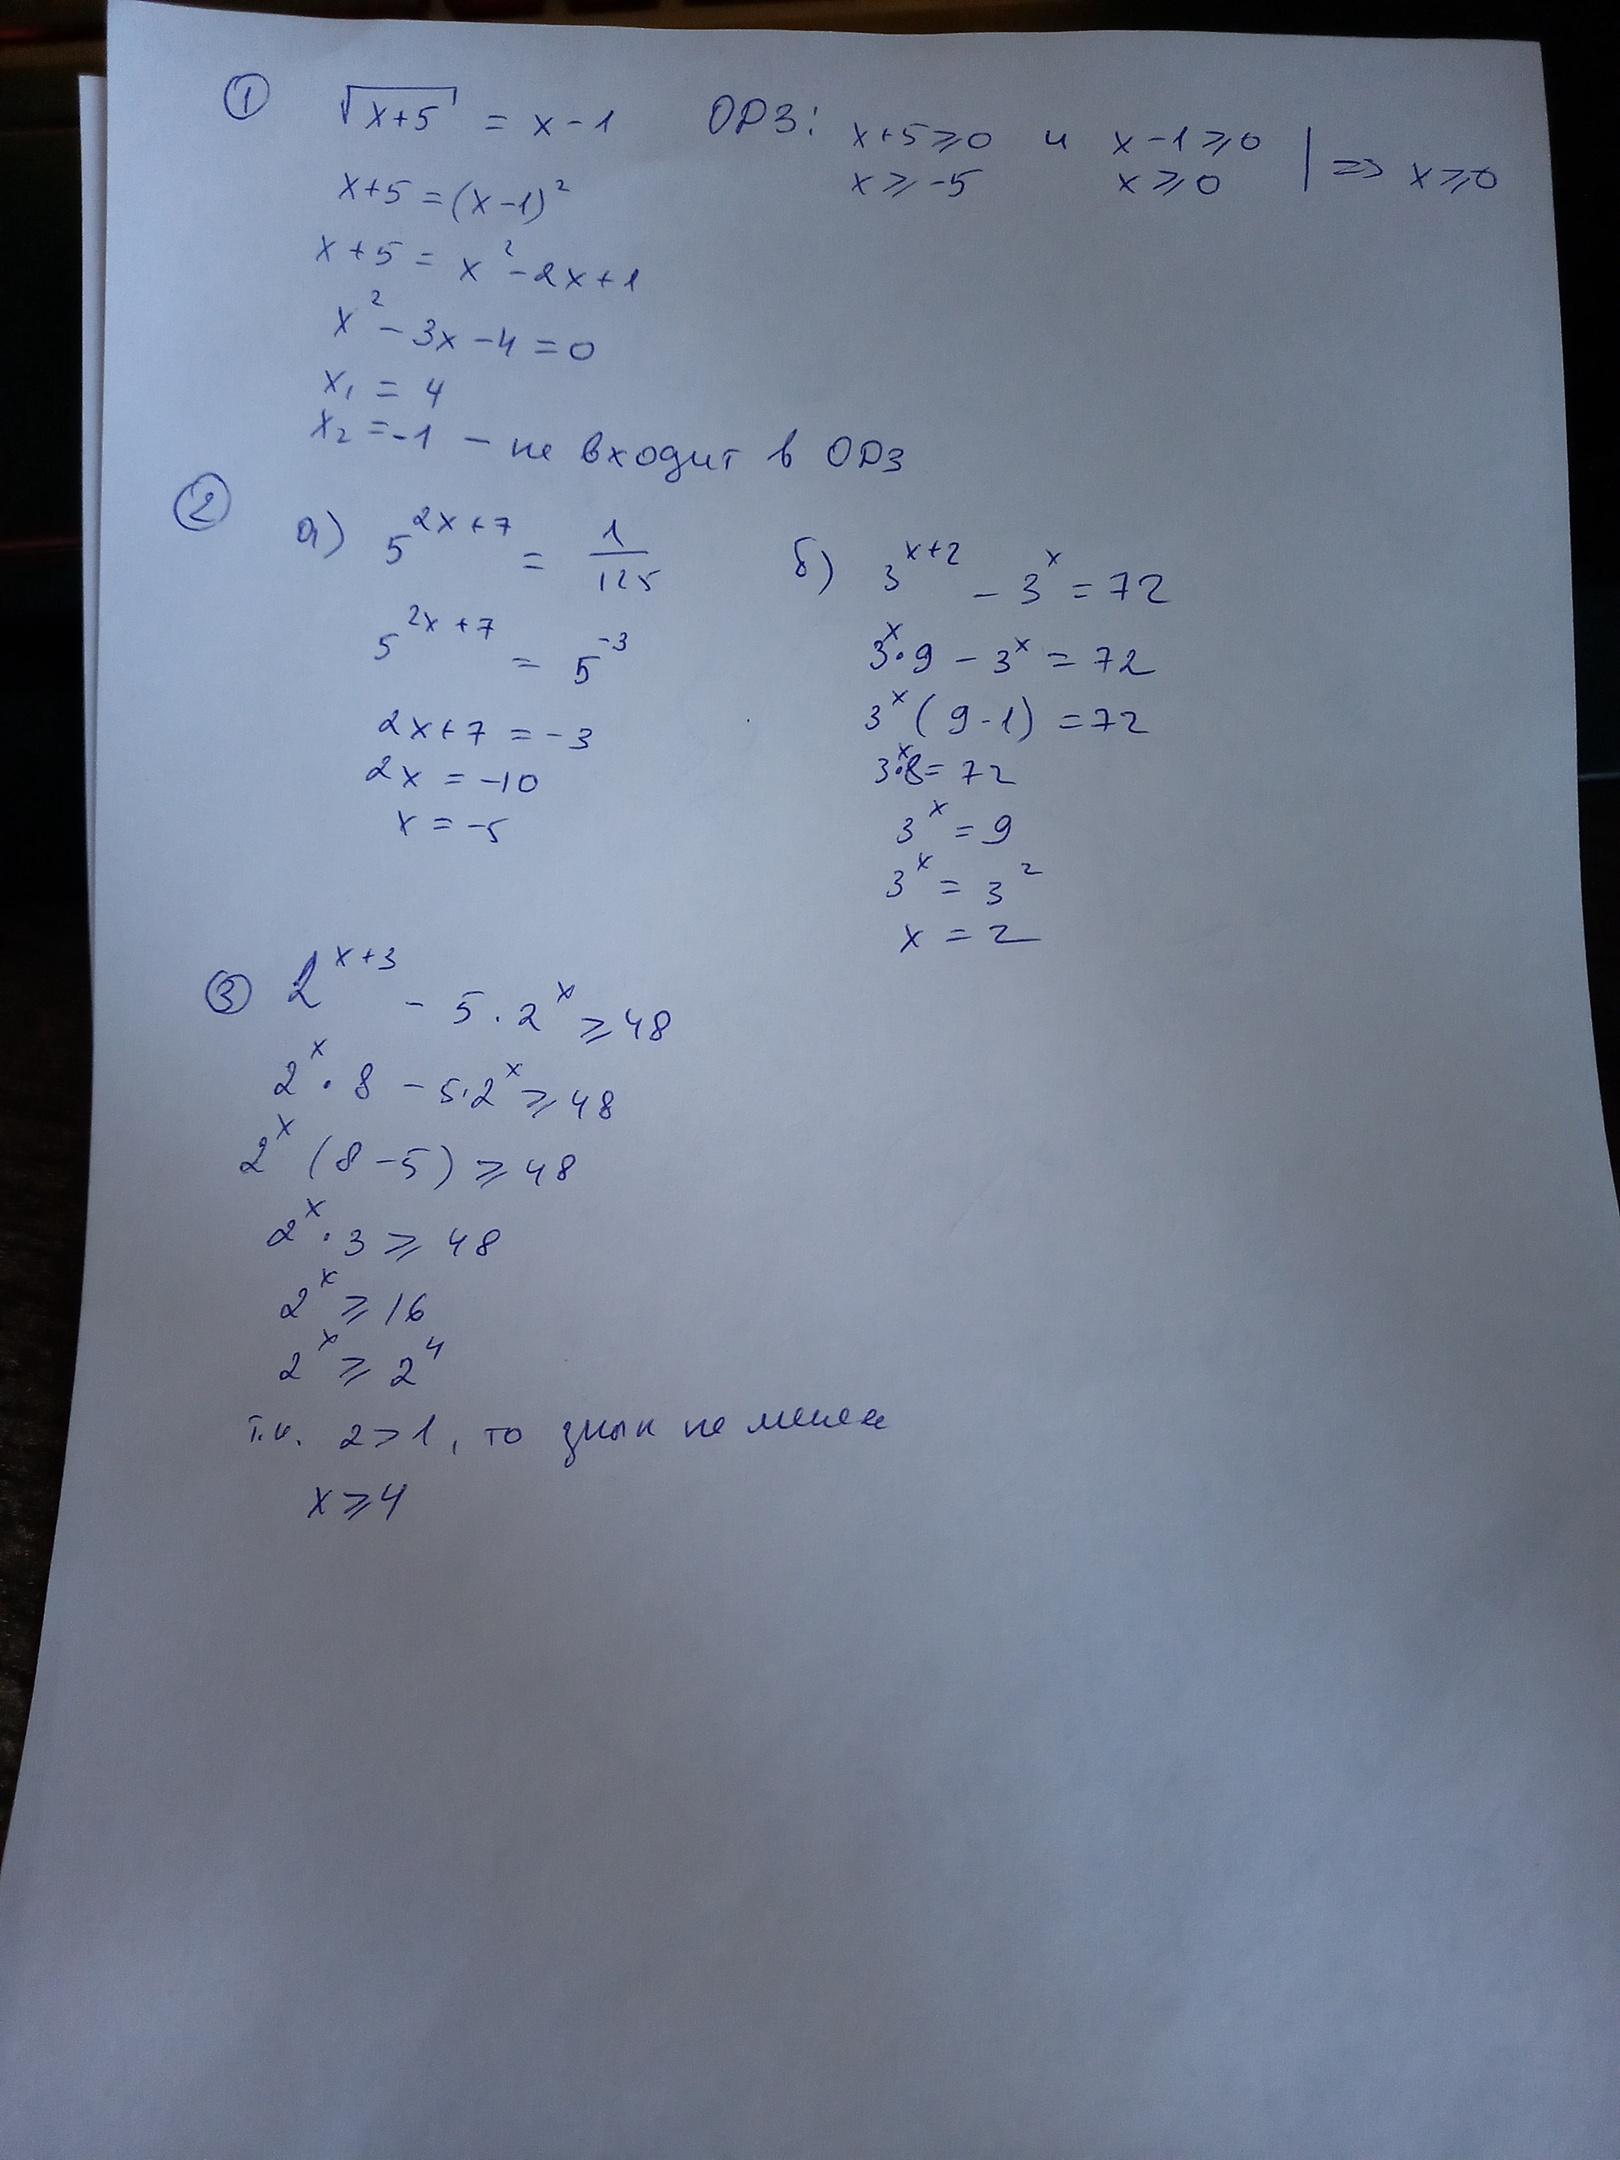 ① √x+5 = x-1 ОДЗ: x+5⩾0 и x-1⩾0 | => x⩾0
x⩾-5 x⩾0
x+5=(x-1)²
x+5 = x²-2x+1
x²-3x-4=0
x₁ = 4
x₂ =-1 - не входит в ОДЗ
②
а) 5^{2x+7} = 1/125
5^{2x+7} = 5^{-3}
2x+7 = -3
2x = -10
x = -5
б) 3^{x+2} - 3^x = 72
3^x·9 - 3^x = 72
3^x(9-1) = 72
3^x·8 = 72
3^x = 9
3^x = 3²
x = 2
③ 2^{x+3} - 5·2^x ⩾ 48
2^x·8 - 5·2^x ⩾ 48
2^x(8-5) ⩾ 48
2^x·3 ⩾ 48
2^x ⩾ 16
2^x ⩾ 2⁴
т.к. 2>1, то знак не меняем
x⩾4